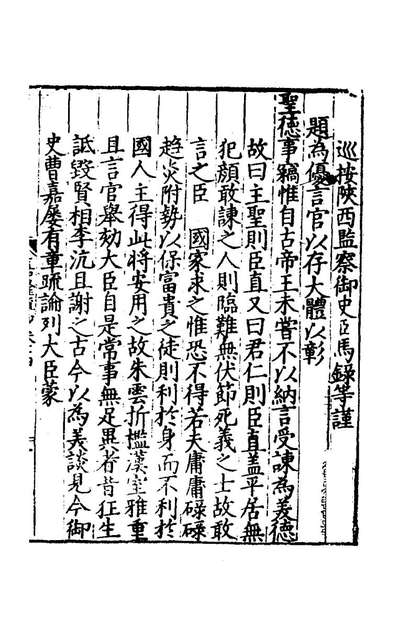 巡按陝西監察御史臣馬錄等謹
題為優言官以存大體以彰
聖德事竊惟自古帝王未嘗不以納言受諫為美德
故曰主聖則臣直又曰君仁則臣直蓋平居無
犯顏敢諫之人則臨難無伏節死義之士故敢
言之臣 國家求之惟恐不得若夫庸庸碌碌
趨炎附勢以保富貴之徒則利於身而不利於
國人主得此將安用之故朱雲折檻漢室雅重
且言官舉劾大臣自是常事無足異者昔狂生
詆毀賢相李沆且謝之古今以為美談見今御
史曹嘉屢有章疏論列大臣蒙